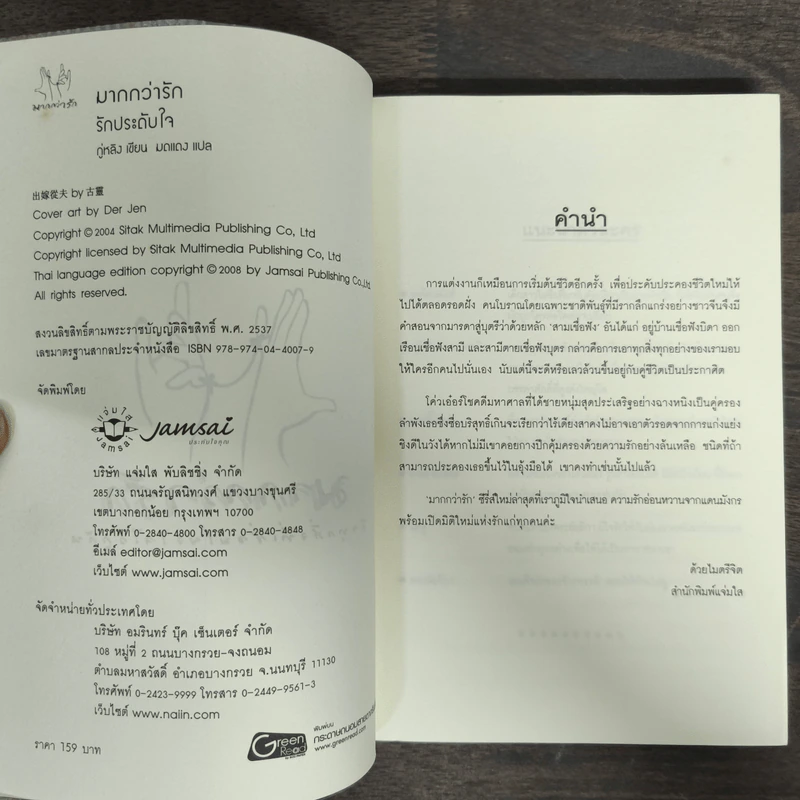 มากกว่ารัก
มากกว่ารัก
รักประดับใจ
กู่หลิง เขียน มดแดง แปล
出嫁從夫 by 古靈
Cover art by Der Jen
Copyright © 2004 Sitak Multimedia Publishing Co, Ltd
Copyright licensed by Sitak Multimedia Publishing Co, Ltd
Thai language edition copyright © 2008 by Jamsai Publishing Co.,Ltd.
All rights reserved.
สงวนลิขสิทธิ์ตามพระราชบัญญัติลิขสิทธิ์ พ.ศ. 2537
เลขมาตรฐานสากลประจำหนังสือ ISBN 978-974-04-4007-9
จัดพิมพ์โดย
แจ่มใส
Jamsai
Jamsai
ประทับใจคุณ
บริษัท แจ่มใส พับลิชชิ่ง จำกัด
285/33 ถนนจรัญสนิทวงศ์ แขวงบางขุนศรี
เขตบางกอกน้อย กรุงเทพฯ 10700
โทรศัพท์ 0-2840-4800 โทรสาร 0-2840-4848
อีเมล์ editor@jamsai.com
เว็บไซต์ www.jamsai.com
จัดจำหน่ายทั่วประเทศโดย
บริษัท อมรินทร์ บุ๊ค เซ็นเตอร์ จำกัด
108 หมู่ที่ 2 ถนนบางกรวย-จงถนอม
ตำบลมหาสวัสดิ์ อำเภอบางกรวย จ.นนทบุรี 11130
โทรศัพท์ 0-2423-9999 โทรสาร 0-2449-9561-3
เว็บไซต์ www.naiin.com
ราคา 159 บาท
Green Read
พิมพ์บน
กระดาษถนอมสายตา
www.greenread.com
คำนำ
การแต่งงานก็เหมือนการเริ่มต้นชีวิตอีกครั้ง เพื่อประคับประคองชีวิตใหม่ให้
ไปได้ตลอดรอดฝั่ง คนโบราณโดยเฉพาะชาติพันธุ์ที่มีรากลึกแกร่งอย่างชาวจีนจึงมี
คำสอนจากมารดาสู่บุตรีว่าด้วยหลัก ‘สามเชื่อฟัง’ อันได้แก่ อยู่บ้านเชื่อฟังบิดา ออก
เรือนเชื่อฟังสามี และสามีตายเชื่อฟังบุตร กล่าวคือการเอาทุกสิ่งทุกอย่างของเรามอบ
ให้ใครอีกคนไปนั่นเอง นับแต่นี้จะดีหรือเลวล้วนขึ้นอยู่กับคู่ชีวิตเป็นประกาศิต
โค่วเอ๋อร์โชคดีมหาศาลที่ได้ชายหนุ่มสุดประเสริฐอย่างฉางหนิงเป็นคู่ครอง
ลำพังเธอซึ่งซื่อบริสุทธิ์เกินจะเรียกว่าไร้เดียงสาคงไม่อาจเอาตัวรอดจากการแก่งแย่ง
ชิงดีในวังได้หากไม่มีเขาคอยกางปีกคุ้มครองด้วยความรักอย่างล้นเหลือ ชนิดที่ถ้า
สามารถประคองเธอขึ้นไว้ในอุ้งมือได้ เขาคงทำเช่นนั้นไปแล้ว
‘มากกว่ารัก’ ซีรี่ส์ใหม่ล่าสุดที่เราภูมิใจนำเสนอ ความรักอ่อนหวานจากแดนมังกร
พร้อมเปิดมิติใหม่แห่งรักแก่ทุกคนค่ะ
ด้วยไมตรีจิต
สำนักพิมพ์แจ่มใส